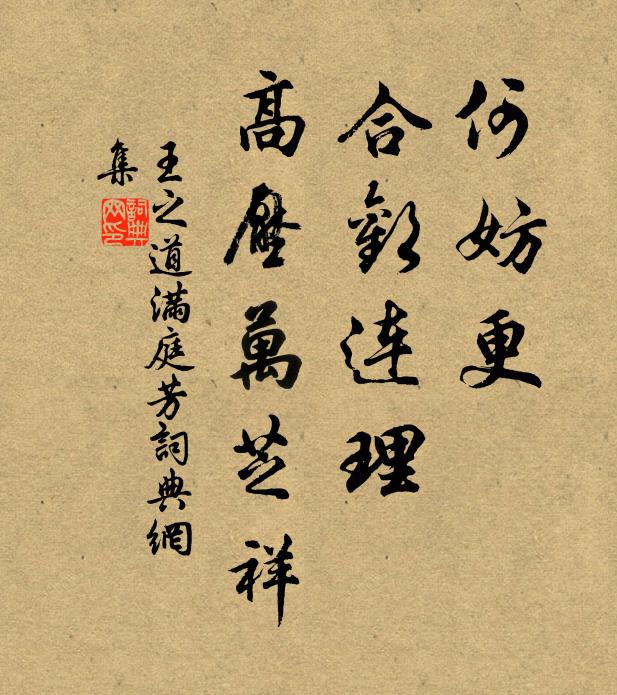 何妨更
合歡連理
高壓萬芝祥
王之道滿庭芳詞典網
集
詞典
网印